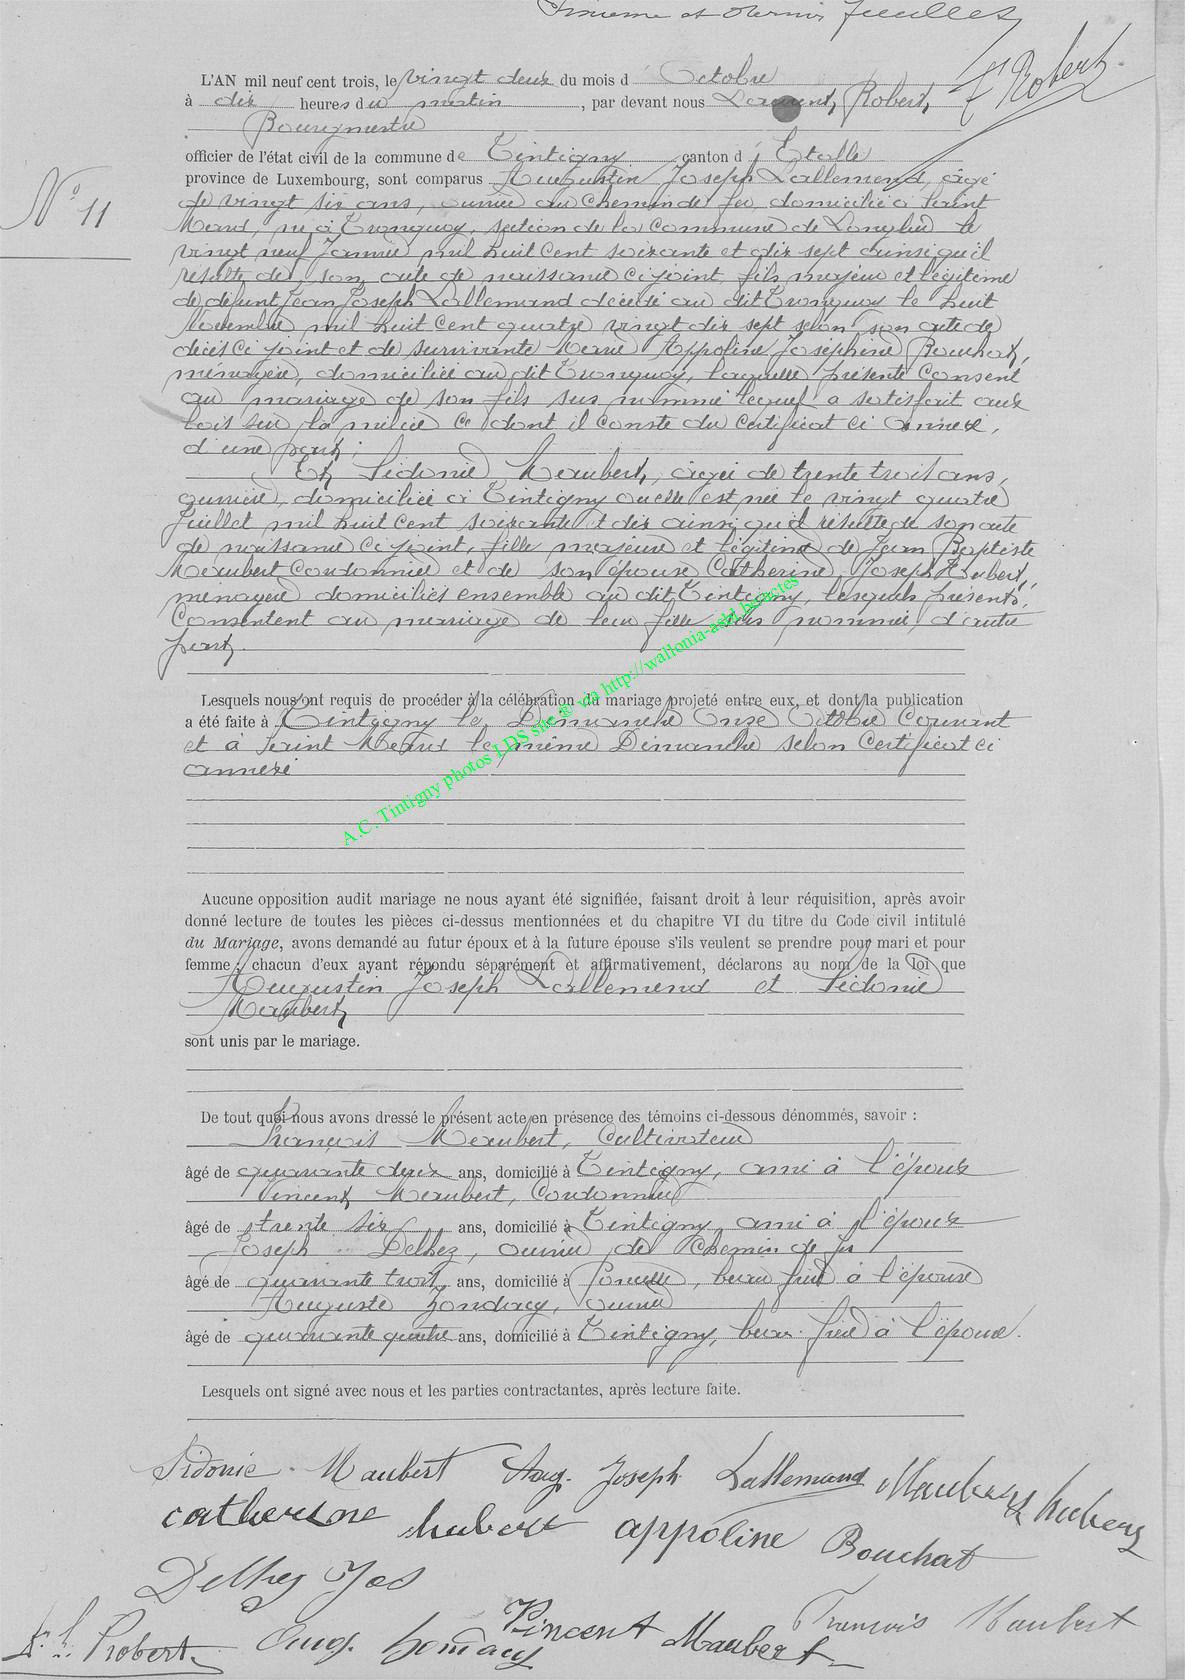 et dernier feuillet
L. Robert
L'AN mil neuf cent trois, le vingt deux du mois d Octobre
à dix heures du matin, par devant nous Laurent Robert,
Bourgmestre
officier de l'état civil de la commune de Tintigny canton d' Etalle
province de Luxembourg, sont comparus Augustin Joseph Lallemand, âgé
N° 11
de vingt six ans, ouvrier au chemin de fer domicilié à Saint
Mard, né à Tronquoy, section de la commune de Longlier le
vingt neuf Janvier mil huit cent soixante et dix sept ainsi qu'il
résulte de son acte de naissance ci joint, fils majeur et légitime
de défunt Jean Joseph Lallemand décédé au dit Tronquoy le huit
Novembre mil huit cent quatre vingt dix sept selon son acte de
décès ci joint et de survivante Marie Appoline Joséphine Bouchat,
ménagère, domiciliée au dit Tronquoy, laquelle présente consent
au mariage de son fils sus nommé lequel a satisfait aux
lois sur la milice ce dont il conste du certificat ci annexé,
d'une part;
Et Sidonie Maubert, âgée de trente trois ans,
ouvrière, domiciliée à Tintigny où elle est née le vingt quatre
Juillet mil huit cent soixante et dix ainsi qu'il résulte de son acte
de naissance ci joint, fille majeure et légitime de Jean Baptiste
Maubert Cordonnier et de son épouse Catherine Joseph Hubert,
ménagère domiciliés ensemble au dit Tintigny, lesquels présents
consentent au mariage de leur fille sus nommée, d'autre
part.
Lesquels nous ont requis de procéder à la célébration du mariage projeté entre eux, et dont la publication
a été faite à Tintigny le Dimanche Onze Octobre Courant
et à Saint Mard le même Dimanche selon certificat ci
annexé
A.C. Tintigny photos LDS site ® via http://wallonia-asbl.be/actes
Aucune opposition audit mariage ne nous ayant été signifiée, faisant droit à leur réquisition, après avoir
donné lecture de toutes les pièces ci-dessus mentionnées et du chapitre VI du titre du Code civil intitulé
du Mariage, avons demandé au futur époux et à la future épouse s'ils veulent se prendre pour mari et pour
femme ; chacun d'eux ayant répondu séparément et affirmativement, déclarons au nom de la loi que
Augustin Joseph Lallemand et Sidonie
Maubert
sont unis par le mariage.
De tout quoi nous avons dressé le présent acte en présence des témoins ci-dessous dénommés, savoir :
François Maubert, Cultivateur
âgé de quarante deux ans, domicilié à Tintigny, ami à l'époux
Vincent Maubert, Cordonnier
âgé de trente six ans, domicilié à Tintigny ami à l'époux
Joseph Delhez, ouvrier de chemin de fer
âgé de quarante trois ans, domicilié à , beau frère à l'épouse
Auguste , ouvrier
âgé de quarante quatre ans, domicilié à Tintigny, beau-frère à l'épouse.
Lesquels ont signé avec nous et les parties contractantes, après lecture faite.
Sidonie Maubert Aug. Joseph Lallemand Maubert Hubert
catherine hubert appoline Bouchat
Delhez Jos
Vincent Maubert François Maubert
L. Robert Aug.